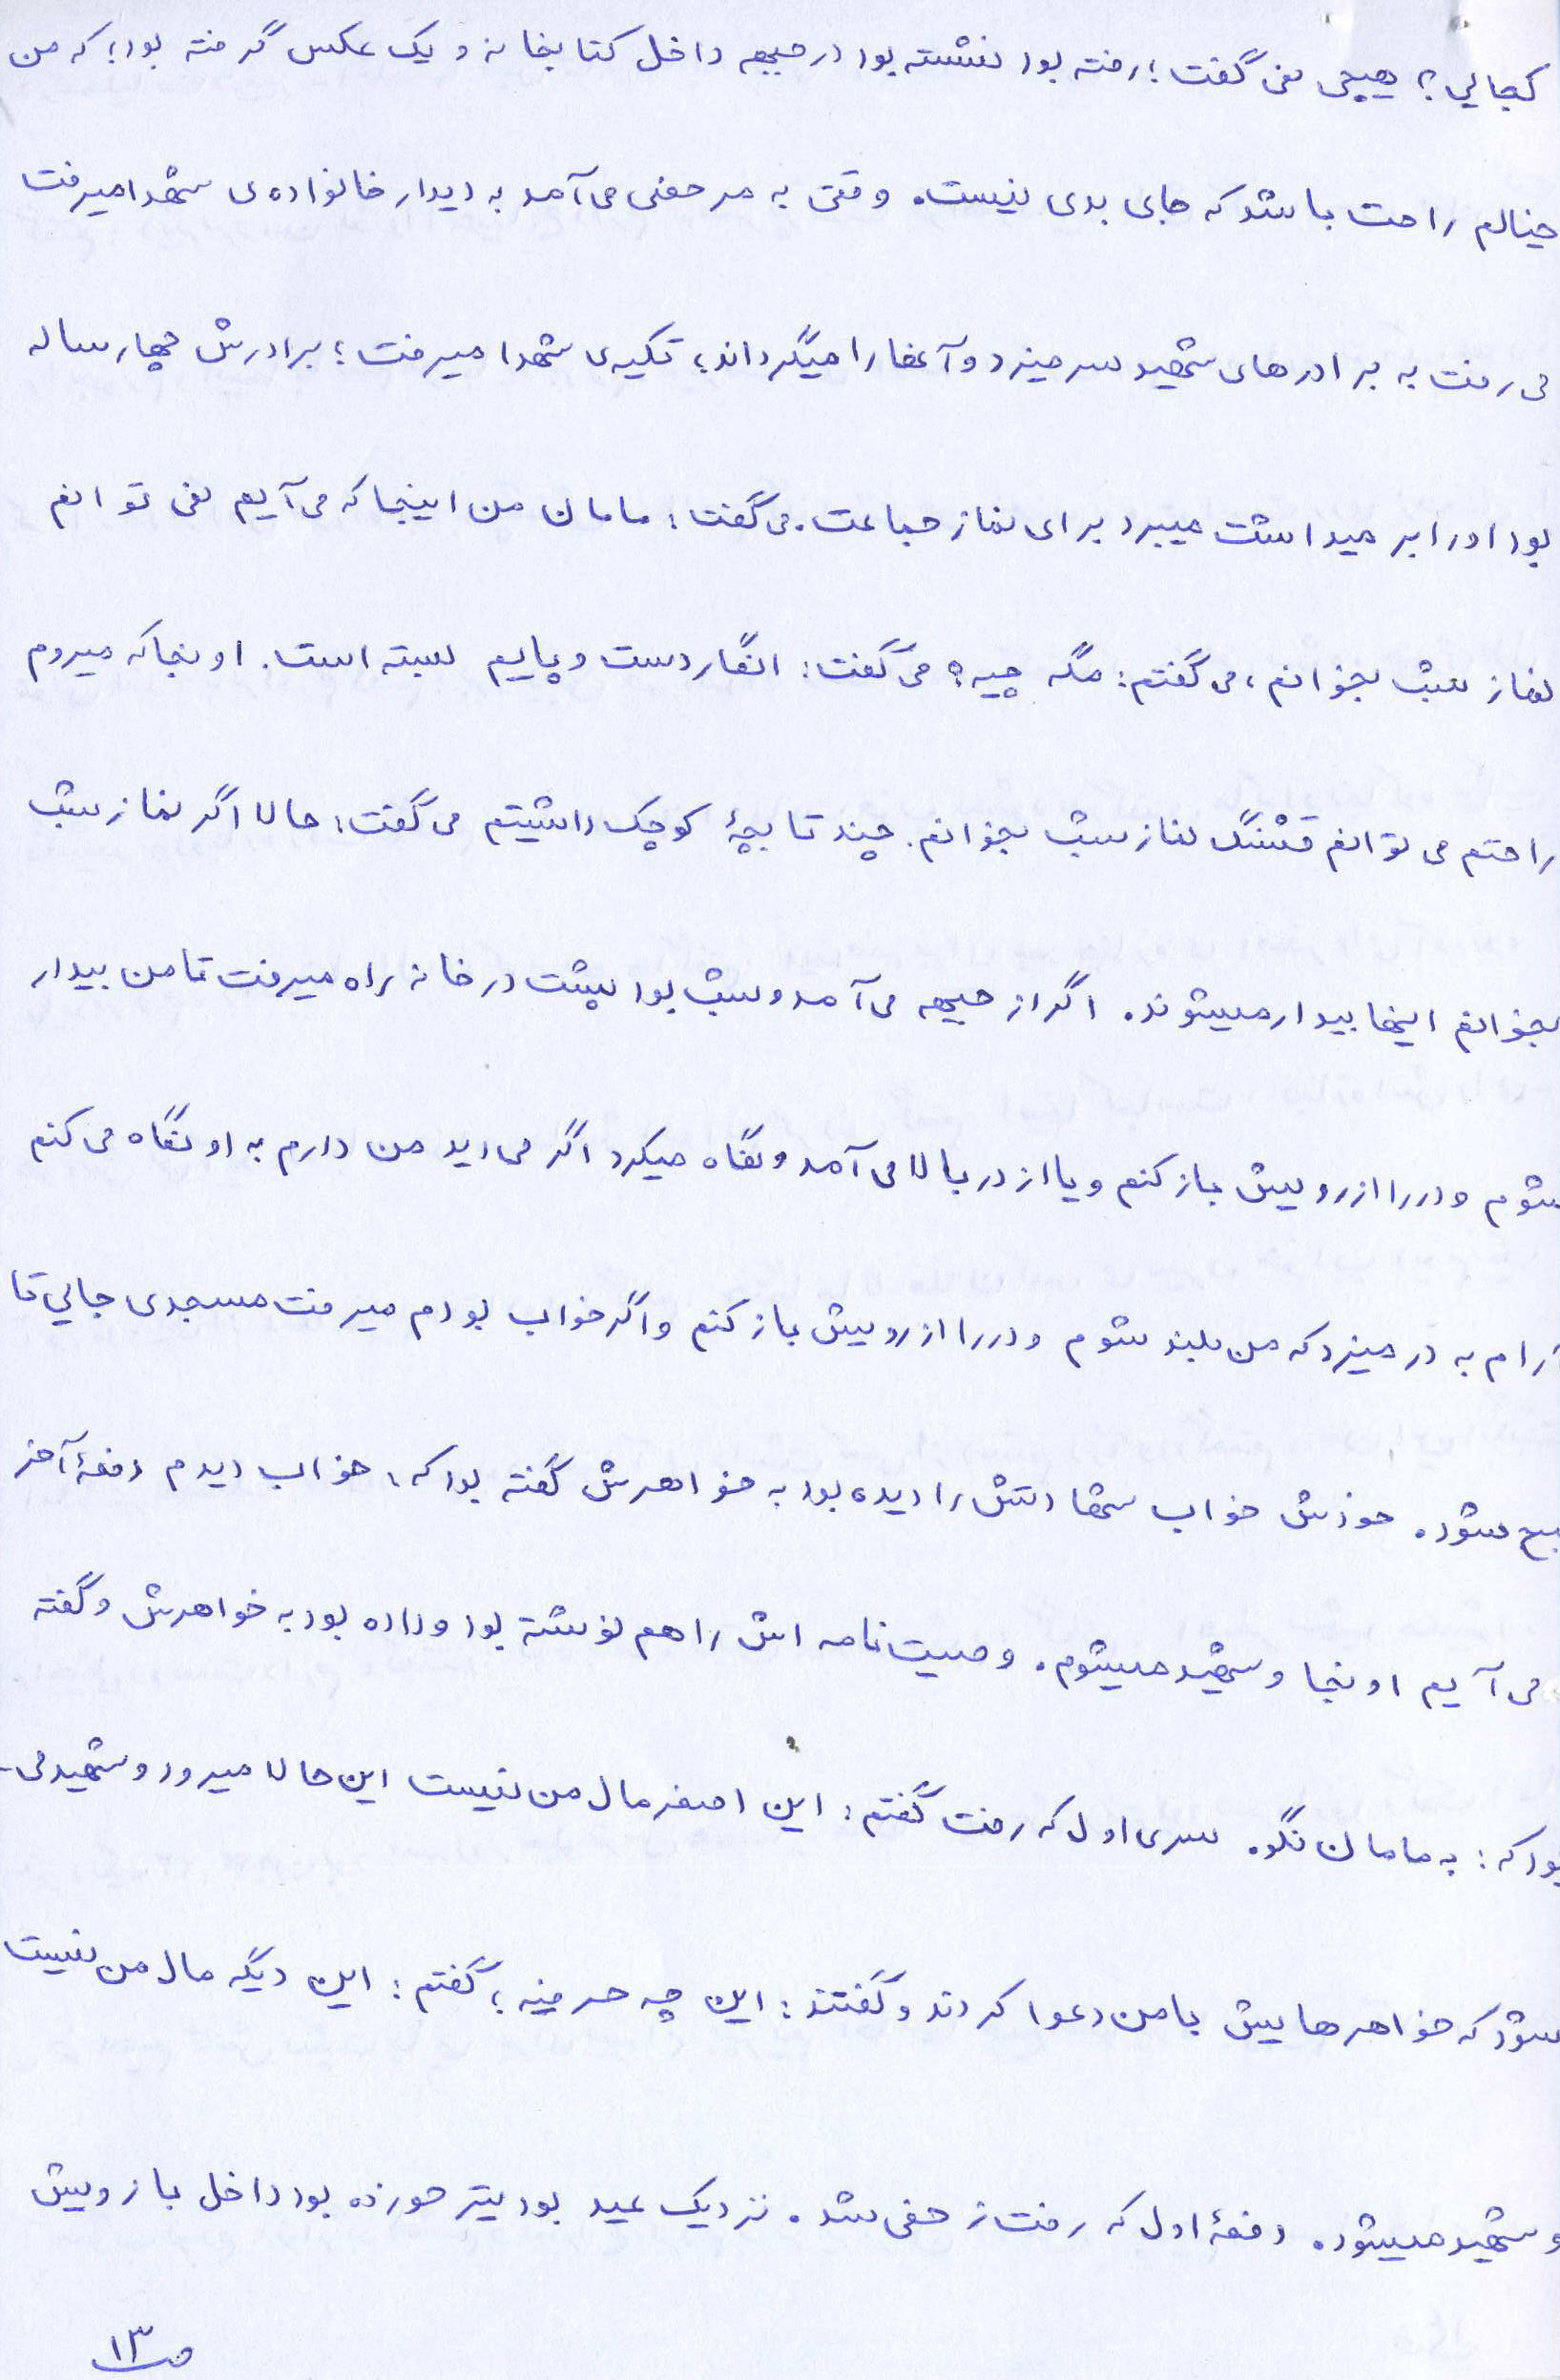 کجایی؟ هیچی نمی گفت؛ رفته بود نشسته بود در جبهه داخل کتابخانه و یک عکس گرفته بود؛ که من
خیالم راحت باشد که جای بدی نیست. وقتی به مرخصی می آمد به دیدار خانواده ی شهدا میرفت
می رفت به برادرهای شهید سر میزد و آنها را میگرداند؛ تکیه ی شهدا میرفت؛ برادرش چهار ساله
بود او را بر میداشت میبرد برای نماز جماعت. می گفت: مامان من اینجا که می آیم نمی توانم
نماز شب بخوانم، می گفتم: مگه چیه؟ می گفت: انگار دست و پایم بسته است. اونجا که میروم
راحتم می توانم قشنگ نماز شب بخوانم. چند تا بچۀ کوچک داشتیم می گفت: حالا اگر نماز شب
بخوانم اینها بیدار میشوند. اگر از جبهه می آمد و شب بود پشت در خانه راه میرفت تا من بیدار
شوم و در را از رویش باز کنم و یا از در بالا می آمد و نگاه میکرد اگر می دید من دارم به او نگاه می کنم
آرام به در میزد که من بلند شوم و در را از رویش باز کنم و اگر خواب بودم میرفت مسجدی جایی تا
صبح شود. خودش خواب شهادتش را دیده بود به خواهرش گفته بود که، خواب دیدم دفعۀ آخر
می آیم اونجا و شهید میشوم. وصیت نامه اش را هم نوشته بود و داده بود به خواهرش و گفته
بود که: به مامان نگو. سری اول که رفت گفتم: این اصغر مال من نیست این حالا میرود و شهید می-
شود که خواهرهایش با من دعوا کردند و گفتند: این چه حرفیه؛ گفتم: این دیگه مال من نیست
و شهید میشود. دفعۀ اول که رفت زخمی شد. نزدیک عید بود تیر خورده بود داخل بازویش
ص ۱۳